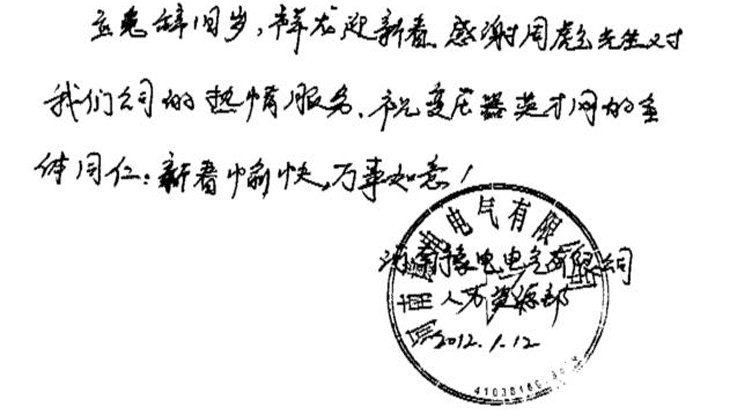 玉兔辞旧岁，祥龙迎新春。感谢周彪先生对
我们公司的热情服务、祝变压器英才网的全
体同仁：新春愉快，万事如意！
河南豫电电气有限公司
人力资源部
2012.1.12
电电气有限